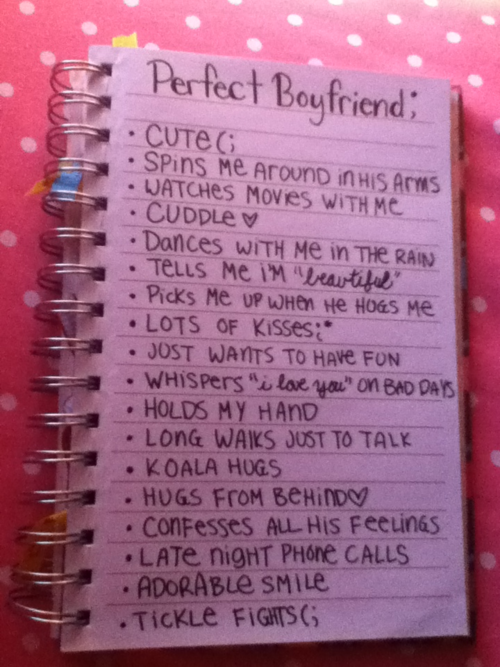 Perfect Boyfriend;
• CUTE(;
• SPINS ME AROUND in HIS ARMS
• WATCHES MOVIES WITH ME
• CUDDLE♥
• DANCES WITH ME in THE RAIN
• TELLS ME I'M "beautiful"
• PICKS ME UP WHEN HE HUGS ME
• LOTS OF KISSES;*
• JUST WANTS TO HAVE FUN
• WHISPERS "i love you" ON BAD DAYS
• HOLDS MY HAND
• LONG WALKS JUST TO TALK
• KOALA HUGS
• HUGS FROM BEHIND♡
• CONFESSES ALL HIS FEELINGS
• LATE nigHT PHONE CALLS
• ADORABLE SMILE
• TICKLE FIGHTS(;